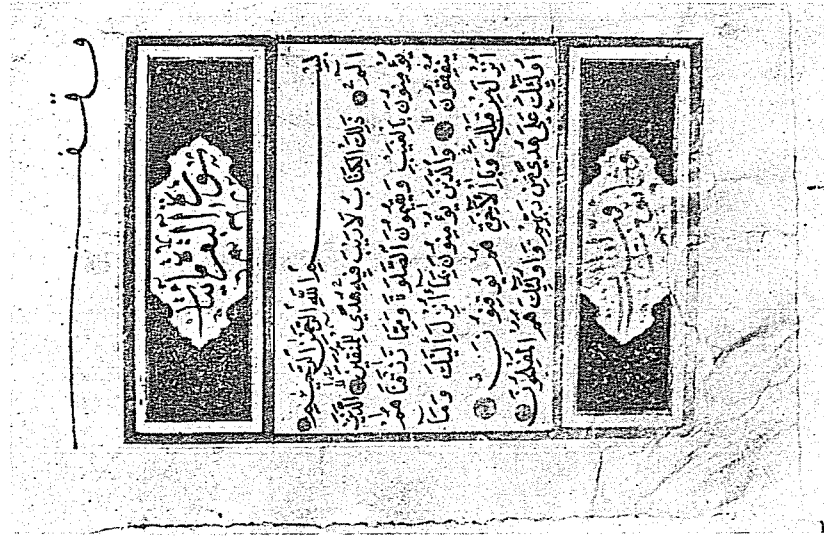 وقف
سورة البقرة
بِسْمِ اللهِ الرَّحْمٰنِ الرَّحِيمِ
الٓمٓ ذٰلِكَ الْكِتَابُ لَا رَيْبَ فِيهِ هُدًى لِلْمُتَّقِينَ الَّذِينَ
يُؤْمِنُونَ بِالْغَيْبِ وَيُقِيمُونَ الصَّلٰوةَ وَمِمَّا رَزَقْنَاهُمْ
يُنْفِقُونَ وَالَّذِينَ يُؤْمِنُونَ بِمَا أُنْزِلَ إِلَيْكَ وَمَا
أُنْزِلَ مِنْ قَبْلِكَ وَبِالْآخِرَةِ هُمْ يُوقِنُونَ
أُولٰئِكَ عَلَى هُدًى مِنْ رَبِّهِمْ وَأُولٰئِكَ هُمُ الْمُفْلِحُونَ